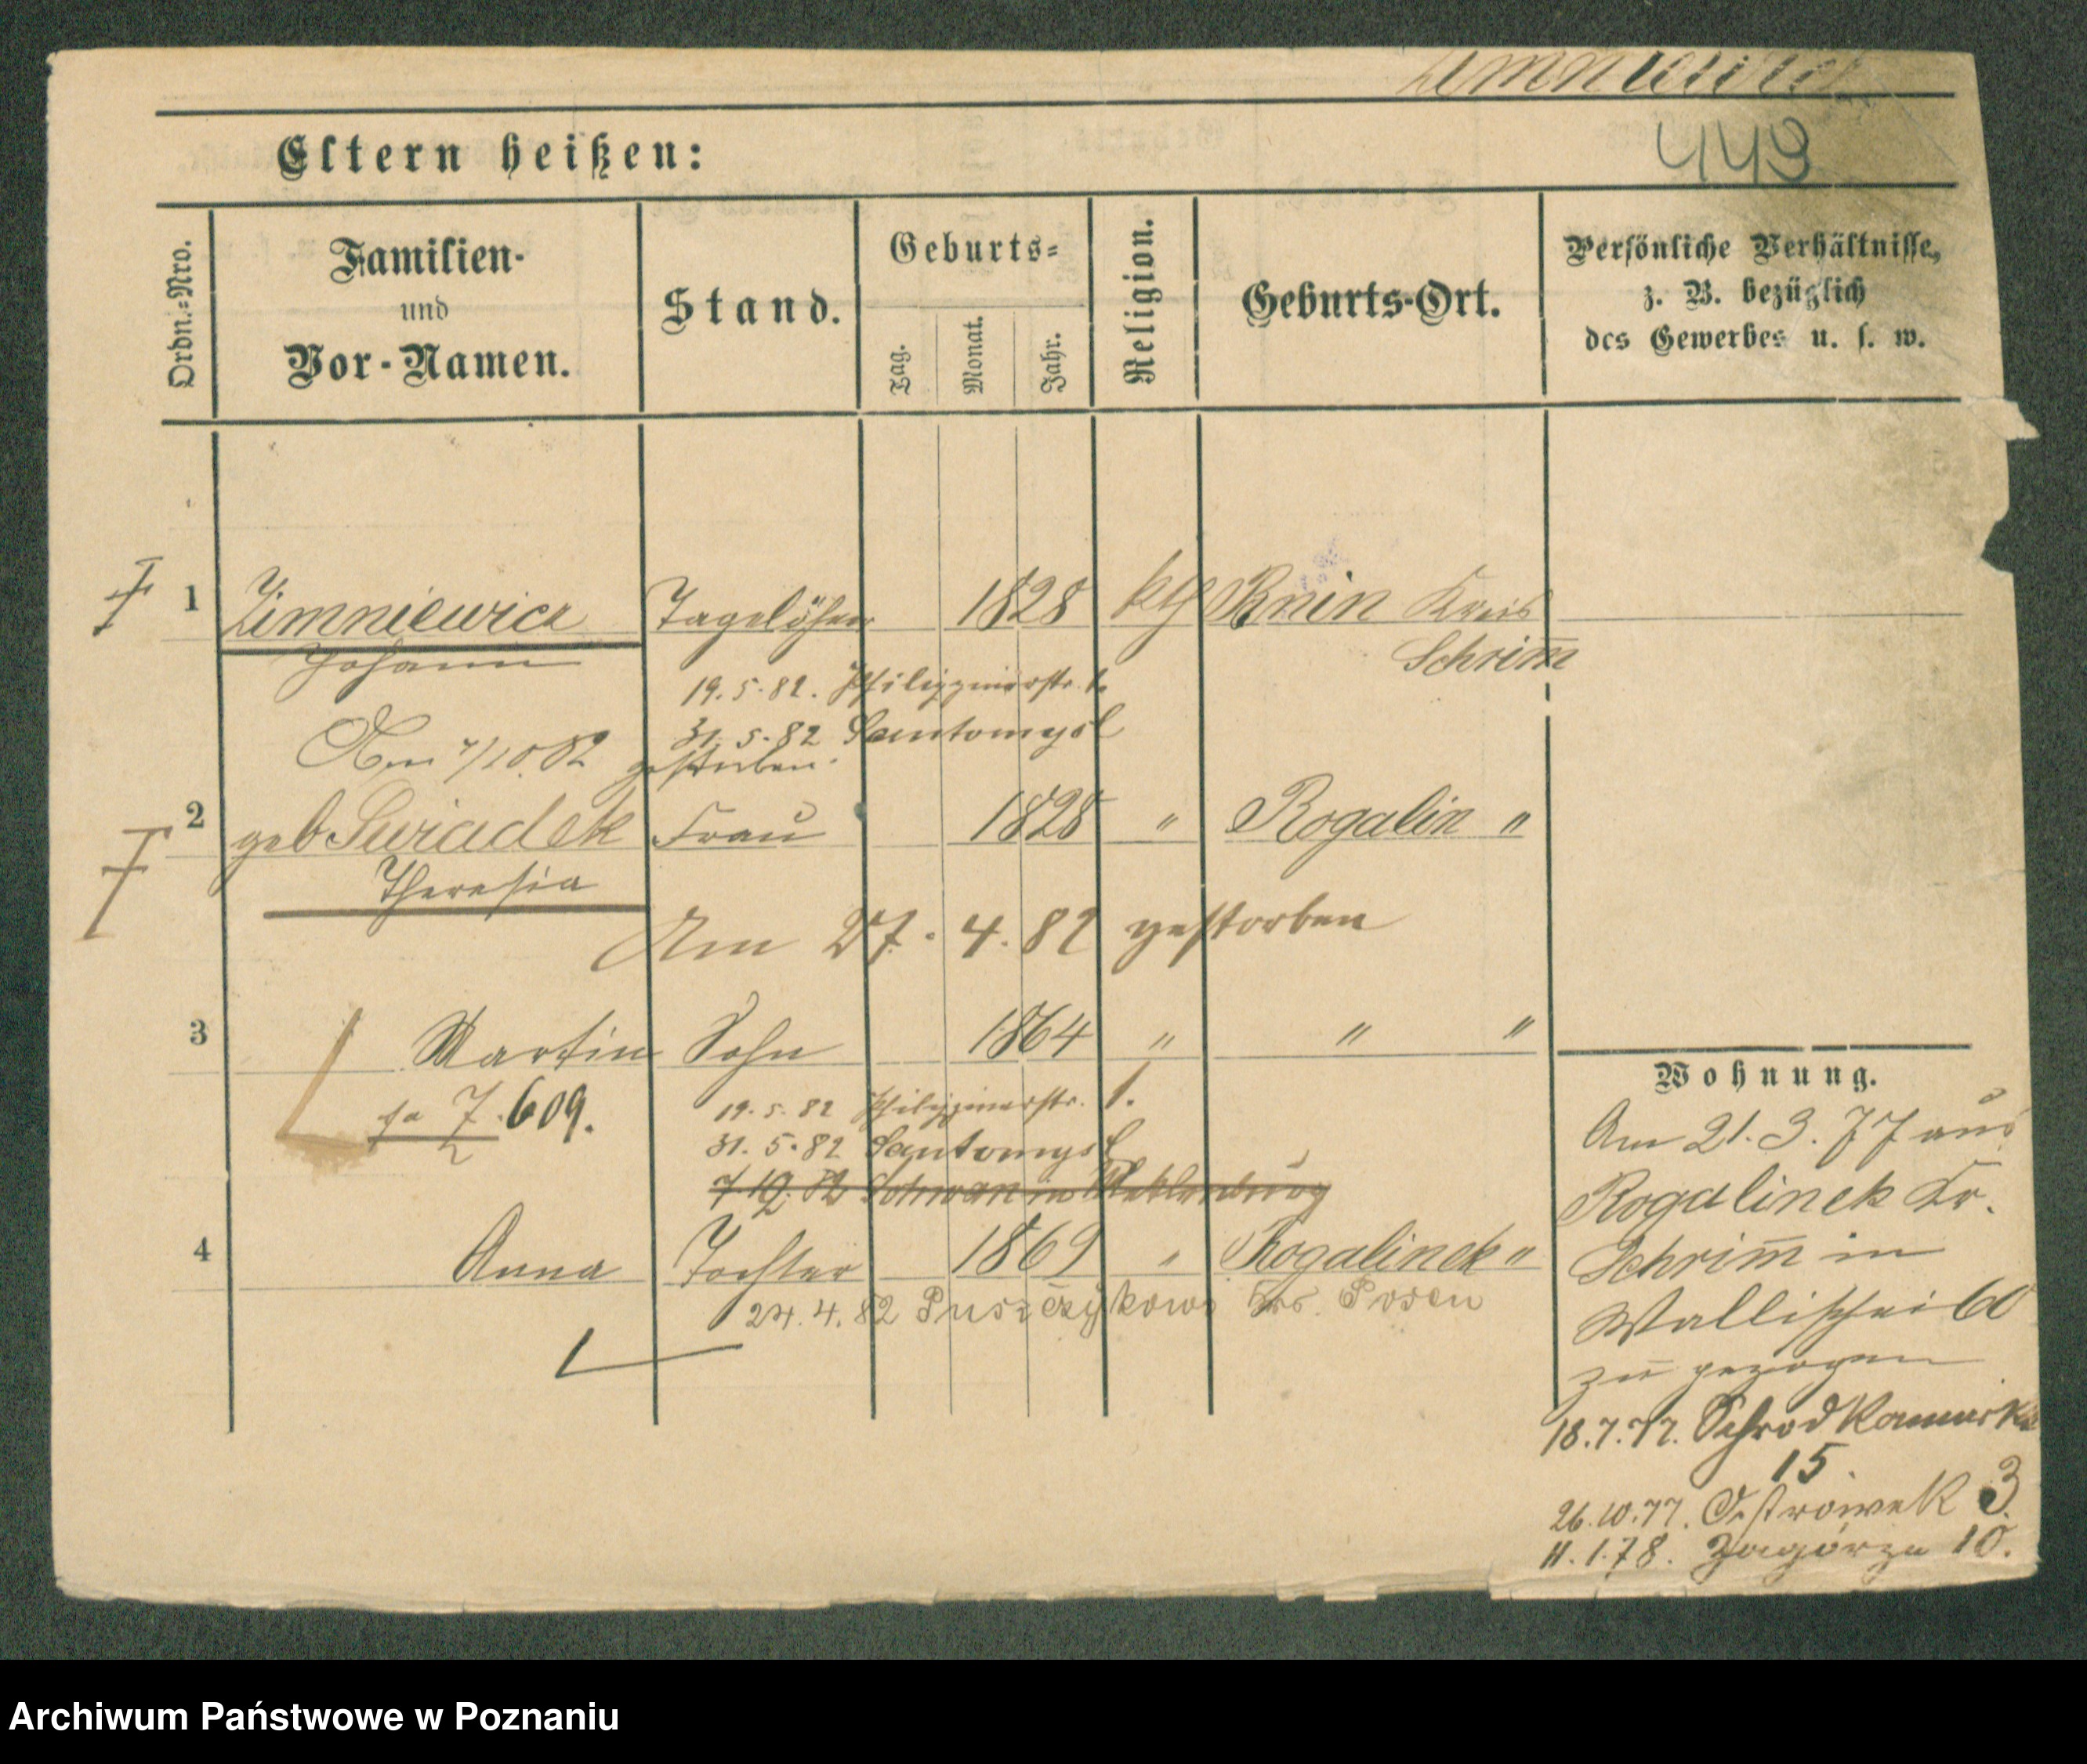 Zimniewicz
449
Eltern heißen:
Ordn.=Nro.
Familien-
und
Vor-Namen.
Stand.
Geburts=
Tag.
Monat.
Jahr.
Religion.
Geburts-Ort.
Persönliche Verhältnisse,
z. B. bezüglich
des Gewerbes u. s. w.
1 Zimniewicz Tagelöhner 1828 kth Bnin Kreis
Johann Schrim̅
19.5.82. Philippinerstr. 1.
31.5.82 Santomysl
Am 7/10.82 gestorben.
2 geb Swiadek Frau 1828 " Rogalin "
Theresia
Am 27.4.82 gestorben
3 Martin Sohn 1864 " " "
19.5.82 Philippinerstr. 1.
609.
31.5.82 Santomysl
Schwan in Meklenburg
4 Anna Tochter 1869 " Rogalinek "
24.4.82 Puszczykowo Krs. Posen
Wohnung.
Am 21.3.77 aus
Rogalinek Kr.
Schrim̅ in
Wallischei 60
zu gezogen
18.7.77. Schrodka
15
26.10.77. Ostrowek 3.
11.1.78. Zagórze 10.
Archiwum Państwowe w Poznaniu